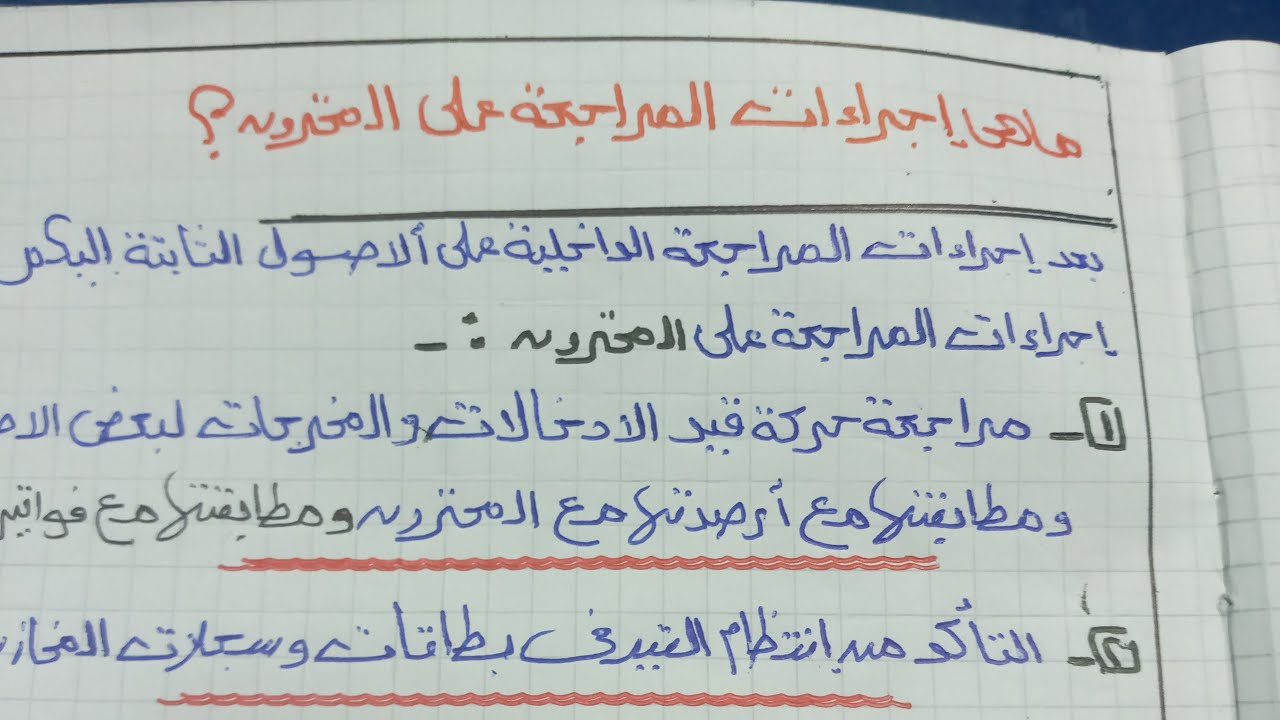 ماهي إجراءات المراجعة على المخزون؟
بعد إجراءات المراجعة الداخلية على ألاصول الثابتة إليكم
إجراءات المراجعة على المخزون :-
١- مراجعة حركة قيد الادخالات والمخرجات لبعض
ومطابقتها مع أرصدتها مع المخزون ومطابقتها مع
٢- التأكد من إنتظام القيد في بطاقات وسجلات